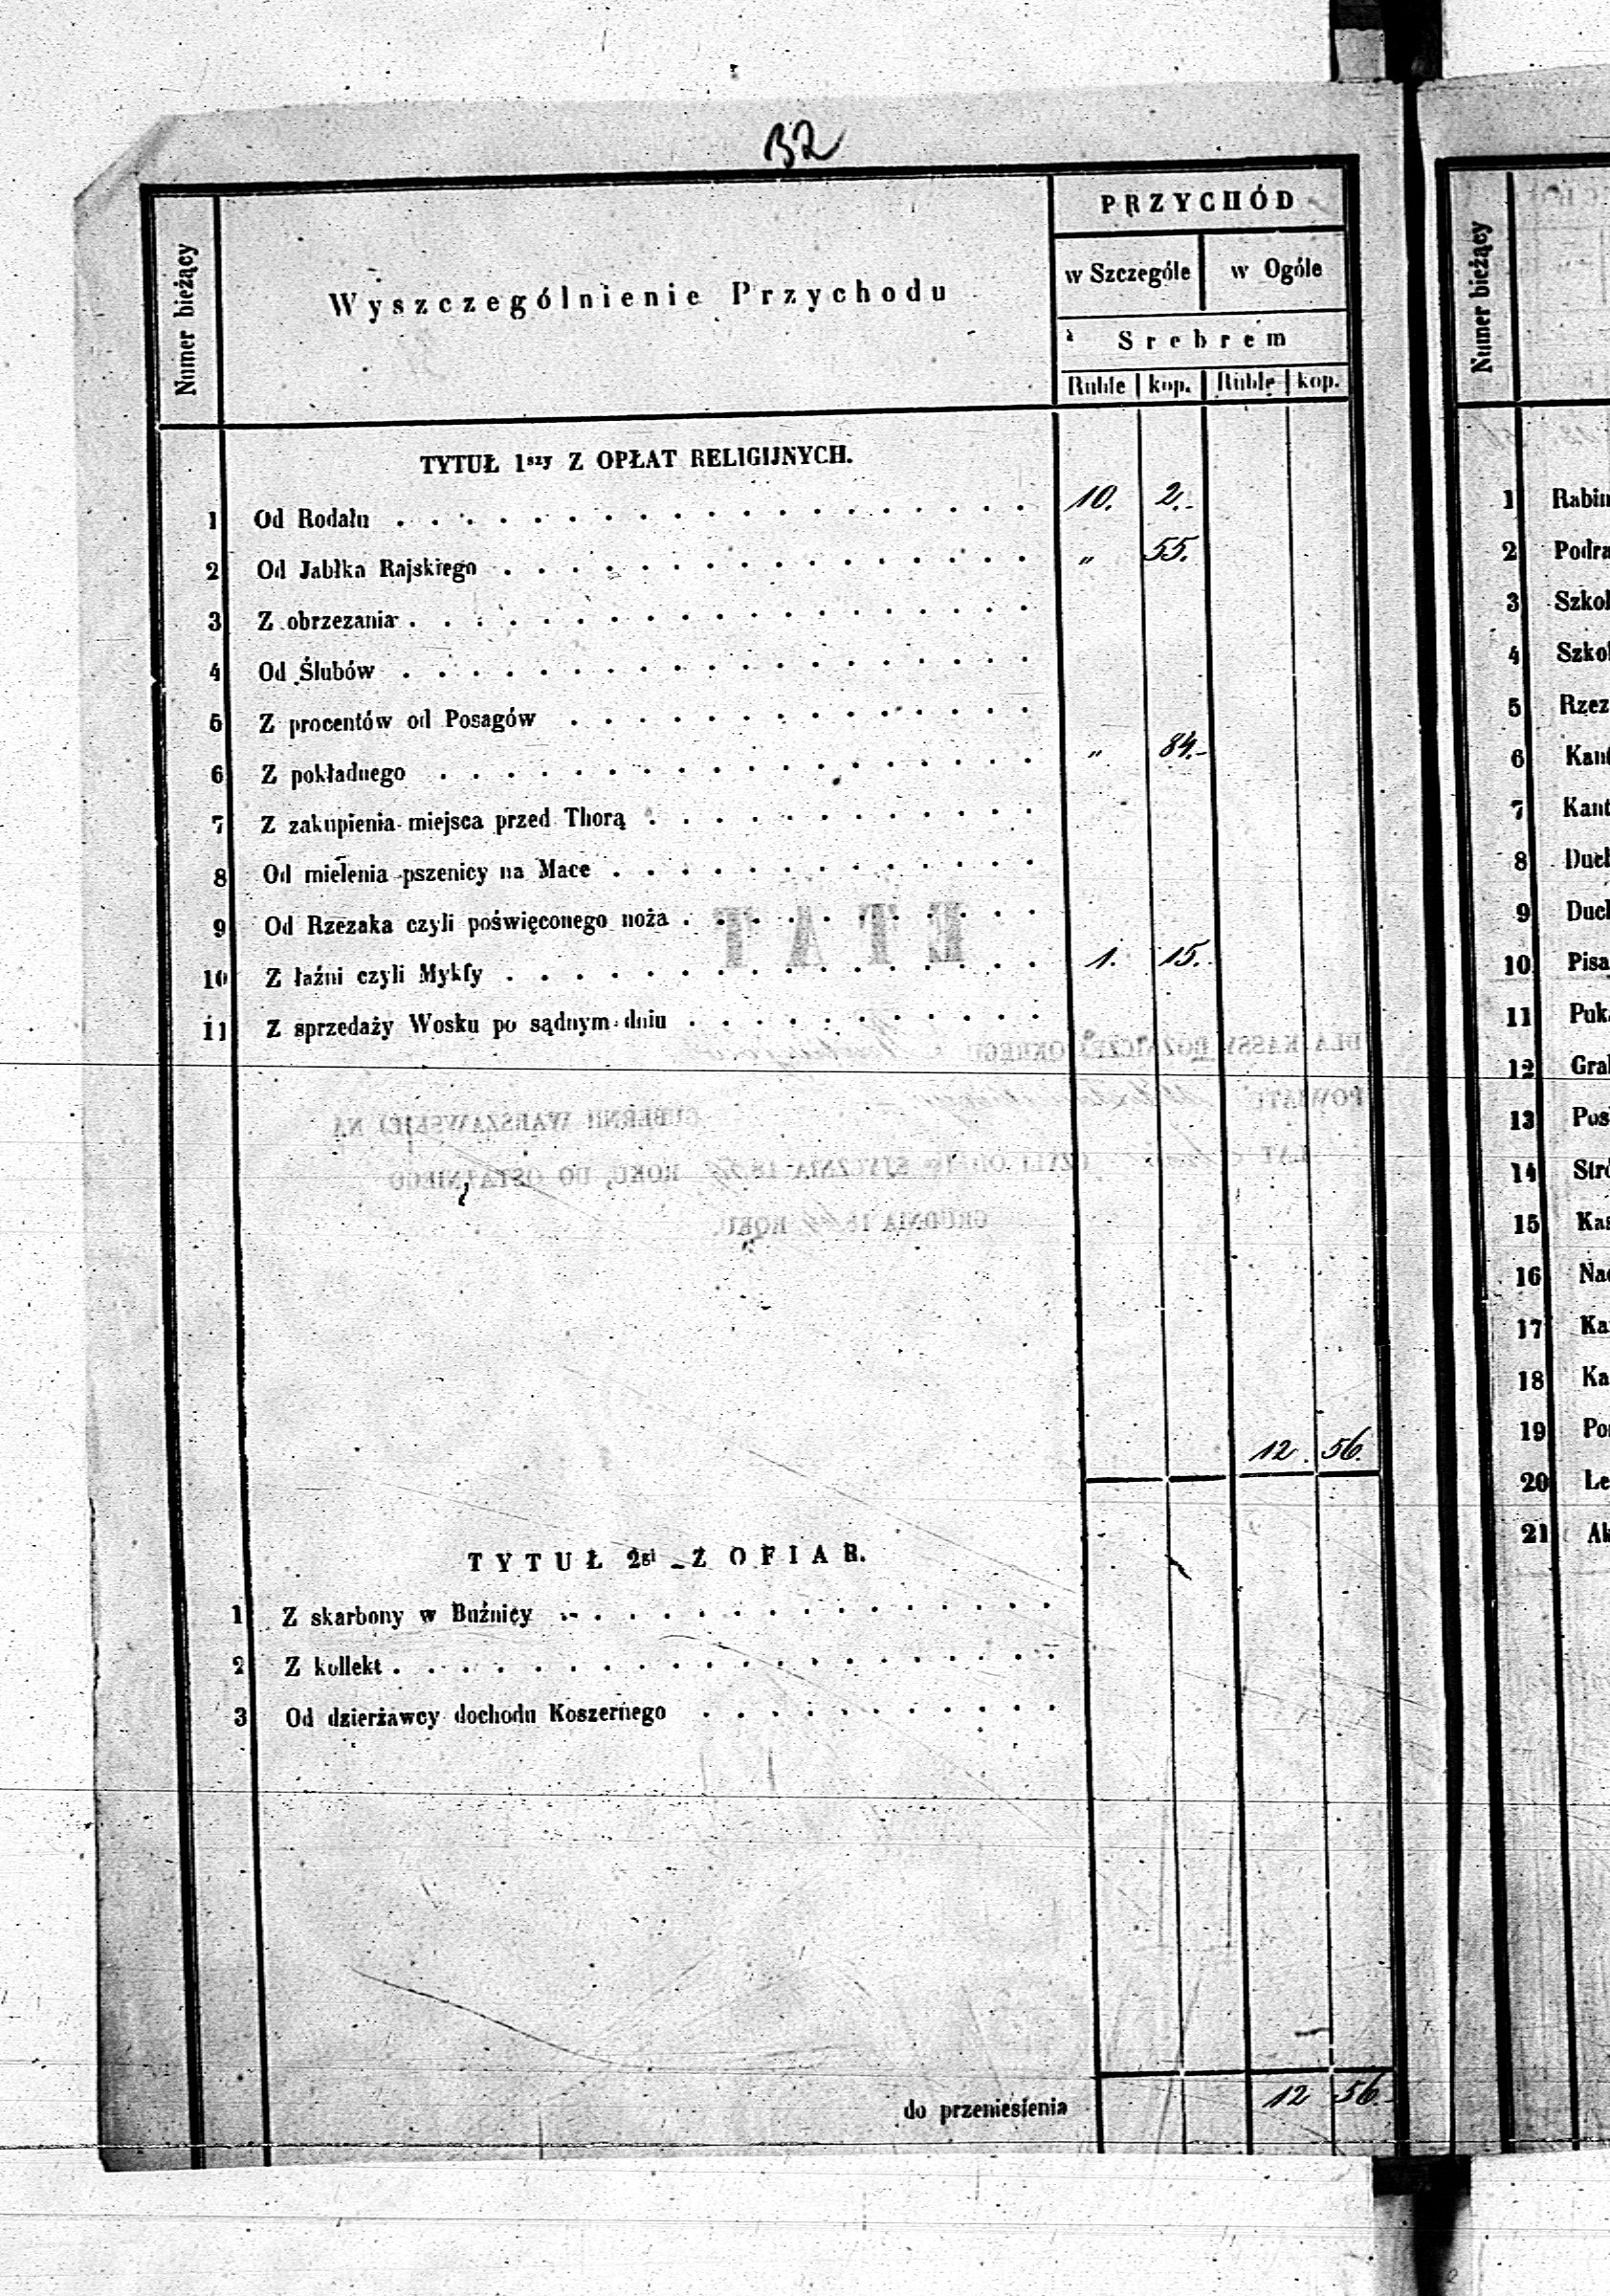 32
Numer bieżący
Wyszczególnienie Przychodu
PRZYCHÓD
w Szczególe w Ogóle
Srebrem
Ruble kop. Ruble kop.
TYTUŁ 1szy Z OPŁAT RELIGIJNYCH.
1 Od Rodału . . . . . . . . . . . . . . . . . . . 10. 2.
2 Od Jabłka Rajskiego . . . . . . . . . . . . . . . . „ 55.
3 Z obrzezania . . . . . . . . . . . . . . . . . . .
4 Od Ślubów . . . . . . . . . . . . . . . . . . .
5 Z procentów od Posagów . . . . . . . . . . . . . .
6 Z pokładnego . . . . . . . . . . . . . . . . . . „ 84.
7 Z zakupienia miejsca przed Thorą . . . . . . . . . . . .
8 Od mielenia pszenicy na Mace . . . . . . . . . . . . .
9 Od Rzezaka czyli poświęconego noża . . . . . . . . . . .
10 Z łaźni czyli Mykfy . . . . . . . . . . . . . . . . 1. 15.
11 Z sprzedaży Wosku po sądnym dniu . . . . . . . . . . .
12. 56.
TYTUŁ 2gi Z OFIAR.
1 Z skarbony w Buźnicy . . . . . . . . . . . . . . .
2 Z kollekt . . . . . . . . . . . . . . . . . . . .
3 Od dzierżawcy dochodu Koszernego . . . . . . . . . . .
do przeniesienia 12 56.
Numer bieżący
1
2
3
4
5
6
7
8
9
10
11
12
13
14
15
16
17
18
19
20
21